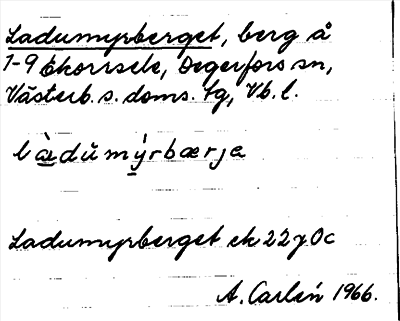 Ladumyrberget, berg å
1-9 Ekorrsele, Degerfors sn,
Västerb. s. doms. tg, Vb. l.
làdŭmýrbærja
Ladumyrberget ek 22 j 0c
A. Carlén 1966.